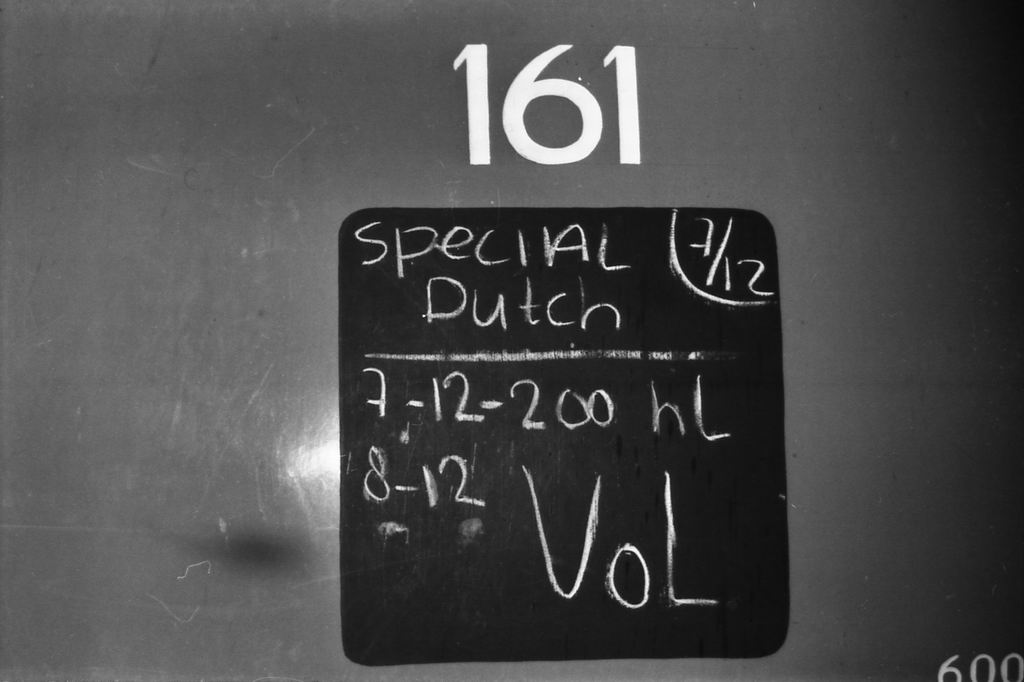 161
SPECIAL 7/12
Dutch
7-12-200 hL
8-12 VOL
600